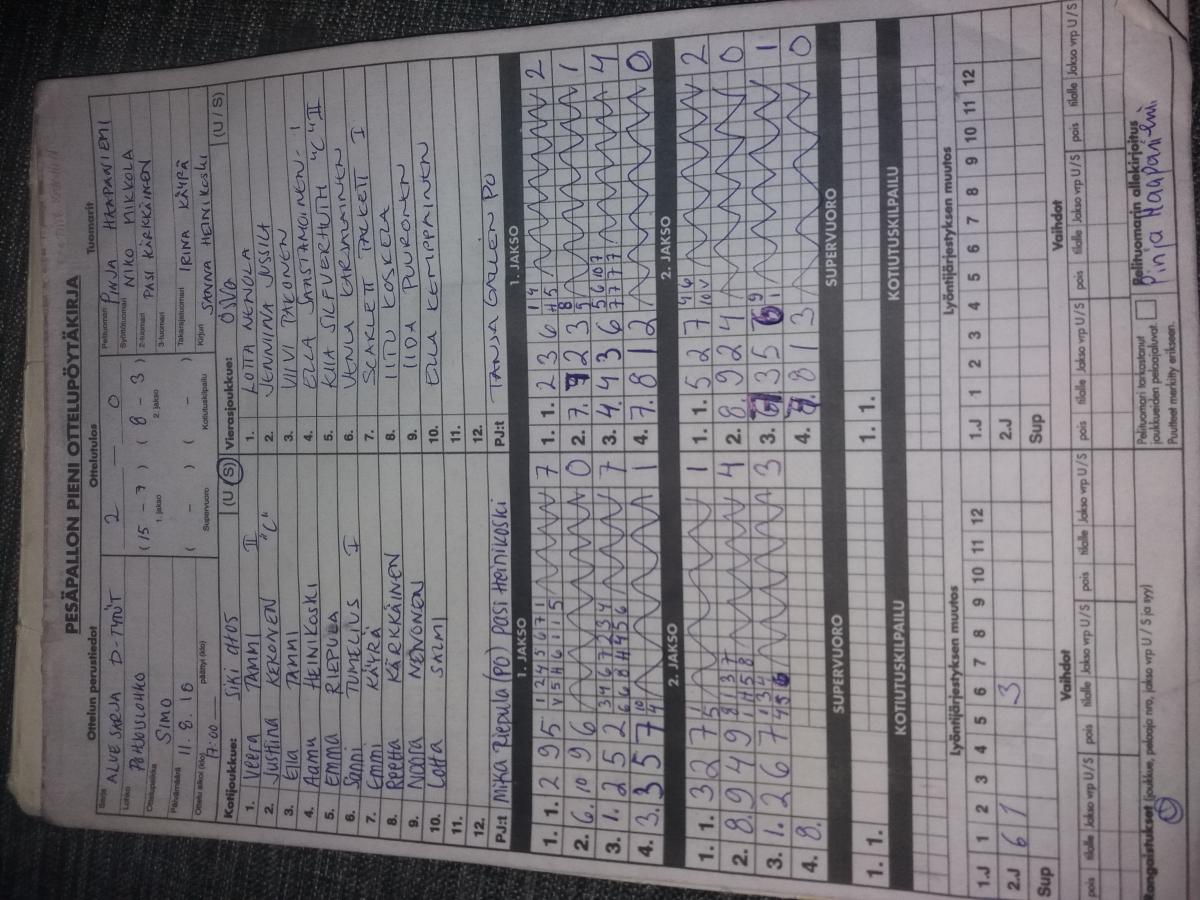 PESÄPALLON PIENI OTTELUPÖYTÄKIRJA
Ottelun perustiedot
Ottelutulos
Tuomarit
Sarja ALUESARJA D-TYTÖT
Lohko POHJOISLOHKO
Ottelupaikka SIMO
Päivämäärä 11.8.18
Ottelu alkoi (klo) 17:00 päättyi (klo)
2 – 0
(15 – 7) (8 – 3)
1. jakso 2. jakso
( – ) ( – )
Supervuoro Kotiutuskilpailu
Pelituomari PINJA HAAPANIEMI
Syöttötuomari NIKO MIKKOLA
2-tuomari PASI KÄRKKÄINEN
3-tuomari
Takarajatuomari IRINA KÄYRÄ
Kirjuri SANNA HEINIKOSKI
Kotijoukkue: SiKi 0405 (U / S)
1. Veera TAMMI II
2. Justiina KEKONEN "C"
3. Ella TAMMI
4. Aamu HEINIKOSKI
5. Emma RIEPULA
6. Sanni TUMELIUS I
7. Emmi KÄYRÄ
8. Reetta KÄRKKÄINEN
9. Noora NENONEN
10. Lotta SALMI
11.
12.
PJ:t Mika Riepula (PO) Pasi Heinikoski
Vierasjoukkue: (U / S)
1. LOTTA NENOLA
2. JENNIINA JUSSILA
3. VIIVI PAKONEN
4. ELLA JAATAMOINEN
5. KIIA SILFVERHUTH "C" II
6. VENLA KARJALAINEN
7. SCARLETT TACKETT I
8. IITU KOSKELA
9. IIDA PUURONEN
10. ELLA KEMPPAINEN
11.
12.
PJ:t TANJA GALLEN PO
1. JAKSO
1. 1. 2 9 5 7
2. 6. 10 9 6 0
3. 1. 2 5 2 7
4. 3. 3 5 7 1
1. JAKSO
1. 1. 2 3 6 2
2. 7. 9 2 3 1
3. 4. 4 3 6 4
4. 7. 8 1 2 0
2. JAKSO
1. 1. 3 2 7 1
2. 8. 9 4 9 4
3. 1. 2 6 7 3
4. 8.
2. JAKSO
1. 1. 5 2 7 2
2. 8. 9 2 4 0
3. 3 5 1
4. 8 1 3 0
SUPERVUORO
1. 1.
SUPERVUORO
1. 1.
KOTIUTUSKILPAILU
KOTIUTUSKILPAILU
Lyöntijärjestyksen muutos
1 2 3 4 5 6 7 8 9 10 11 12
1.J
2.J 6 1 3
Sup
Lyöntijärjestyksen muutos
1 2 3 4 5 6 7 8 9 10 11 12
1.J
2.J
Sup
Vaihdot
pois tilalle Jakso vrp U / S pois tilalle Jakso vrp U / S pois tilalle Jakso vrp U / S
Vaihdot
pois tilalle Jakso vrp U / S pois tilalle Jakso vrp U / S pois tilalle Jakso vrp U / S
Rangaistukset (joukkue, pelaaja nro, jakso vrp U / S ja syy)
Pelituomari tarkastanut
joukkueiden pelaajaluvat.
Puutteet merkitty erikseen.
Pelituomarin allekirjoitus
Pinja Haapaniemi